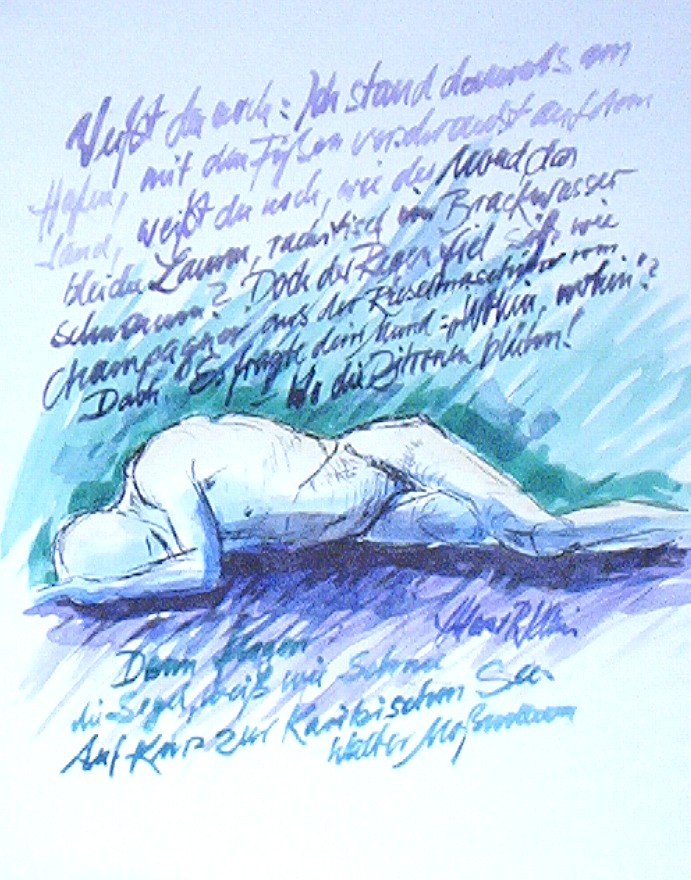 Weißt du noch: Ich stand damals am
Hafen, mit den Füßen verschränkst auf dem
Land, weißt du noch, wie der Mond den
bleichen Lauren, rachitisch im Brackwasser
schwamm? Doch der Regen fiel süß wie
Champagner aus der Rieselmaschine vom
Dach. Es fragte dein Mund: "Wohin, wohin"?
Wo die Zitronen blühn!
Dann flogen
die Segel, weiß wie Schnee
Auf Kurs zur Karibischen See.
Walter Moßmann